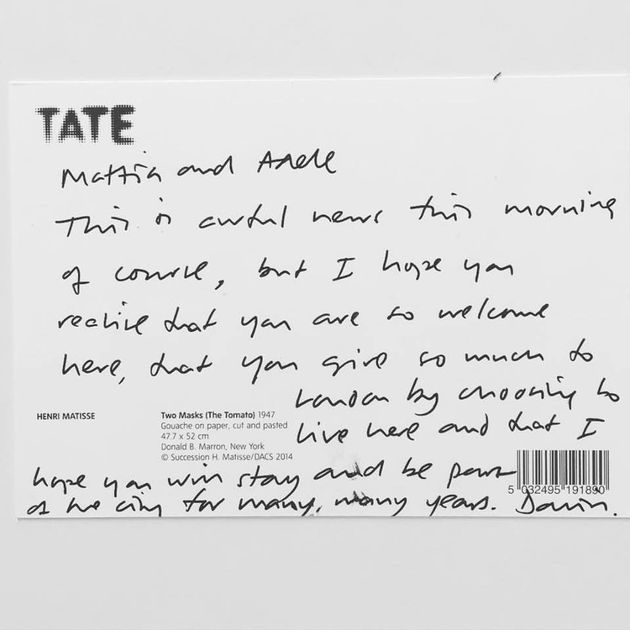 TATE
Mattia and Adele
This is awful news this morning
of course, but I hope you
realise that you are so welcome
here, that you give so much to
London by choosing to
live here and that I
HENRI MATISSE
Two Masks (The Tomato) 1947
Gouache on paper, cut and pasted
47.7 x 52 cm
Donald B. Marron, New York
© Succession H. Matisse/DACS 2014
hope you will stay and be part
of the city for many, many years.
5 032495 191890